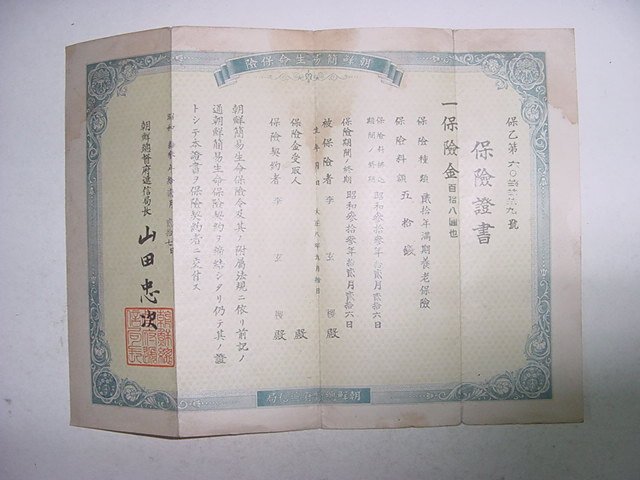 朝鮮簡易生命保險
保險證書
一保險金百拾八圓也
保險種類 貳拾年滿期養老保險
保險料額 五拾錢
保險料拂込期間ノ終期 昭和參拾參年拾貳月貳拾六日
保險期間ノ終期 昭和參拾參年拾貳月貳拾六日
被保險者 李玄 殿
生年月日 大正八年九月拾日
保險金受取人 殿
保險契約者 李玄 殿
朝鮮簡易生命保險令及其ノ附屬法規ニ依リ前記ノ
通朝鮮簡易生命保險契約ヲ締結シタリ仍テ其ノ證
トシテ本證書ヲ保險契約者ニ交付ス
朝鮮總督府遞信局長 山田忠次
朝鮮總督府遞信局